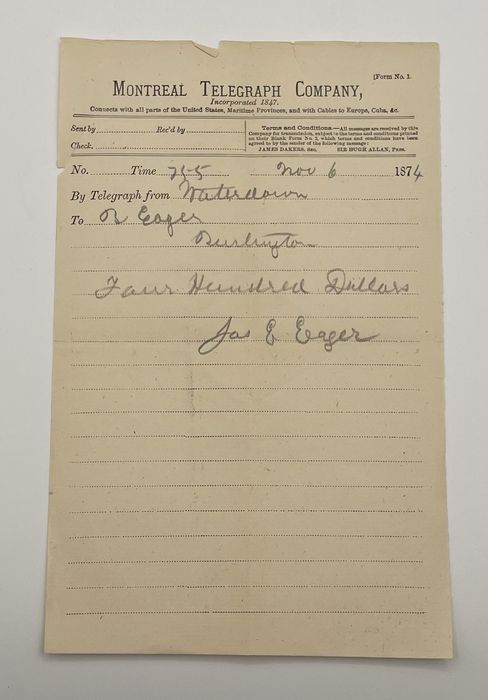 [Form No. 1.
MONTREAL TELEGRAPH COMPANY,
Incorporated 1847.
Connects with all parts of the United States, Maritime Provinces, and with Cables to Europe, Cuba, &c.
Sent by Rec'd by
Check.
Terms and Conditions.—All messages are received by this
Company for transmission, subject to the terms and conditions printed
on their Blank Form No. 2, which terms and conditions have been
agreed to by the sender of the following message:
JAMES DAKERS, Sec. SIR HUGH ALLAN, Pres.
No. Time Nov 6 1874
By Telegraph from Waterdown
To R Eager
Burlington
Four Hundred Dollars
Jas E Eager